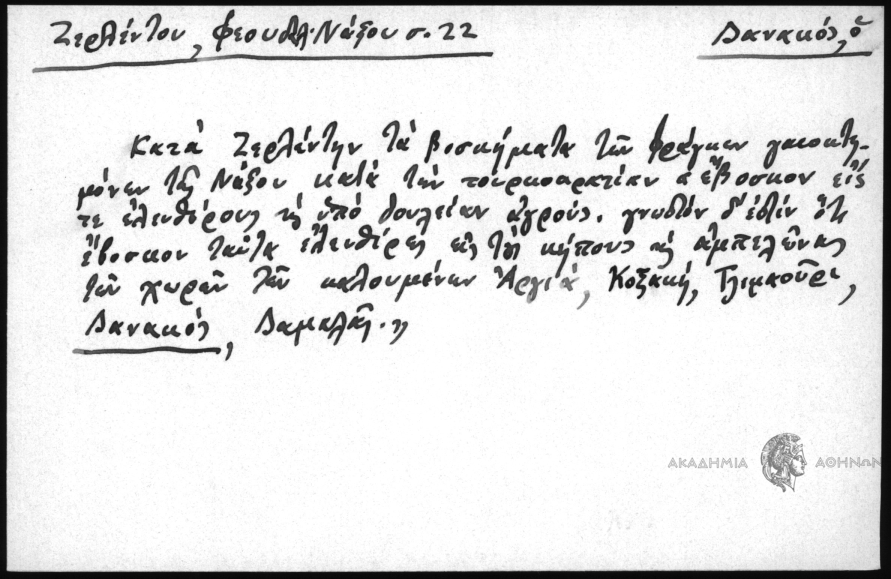 Ζερλέντου, Φεουδαλ. Νάξου σ. 22
Δανακός, ὁ
Κατά Ζερλέντην τά βοσκήματα τῶν Φράγκων γαιοκτη-
μόνων τῆς Νάξου κατά τήν τουρκοκρατίαν « ἔβοσκον εἰς
τε ἐλευθέρους καί ὑπό δουλείαν ἀγρούς. γνωστόν δ' ἐστίν ὅτι
ἔβοσκον ταῦτα ἐλευθέρως εἰς τούς κήπους καί ἀμπελῶνας
τῶν χωρῶν τῶν καλουμένων Ἀργιά, Κοξακή, Τσιμκοῦρι,
Δανακός, Δαμαλᾶς. »
ΑΚΑΔΗΜΙΑ ΑΘΗΝΩΝ